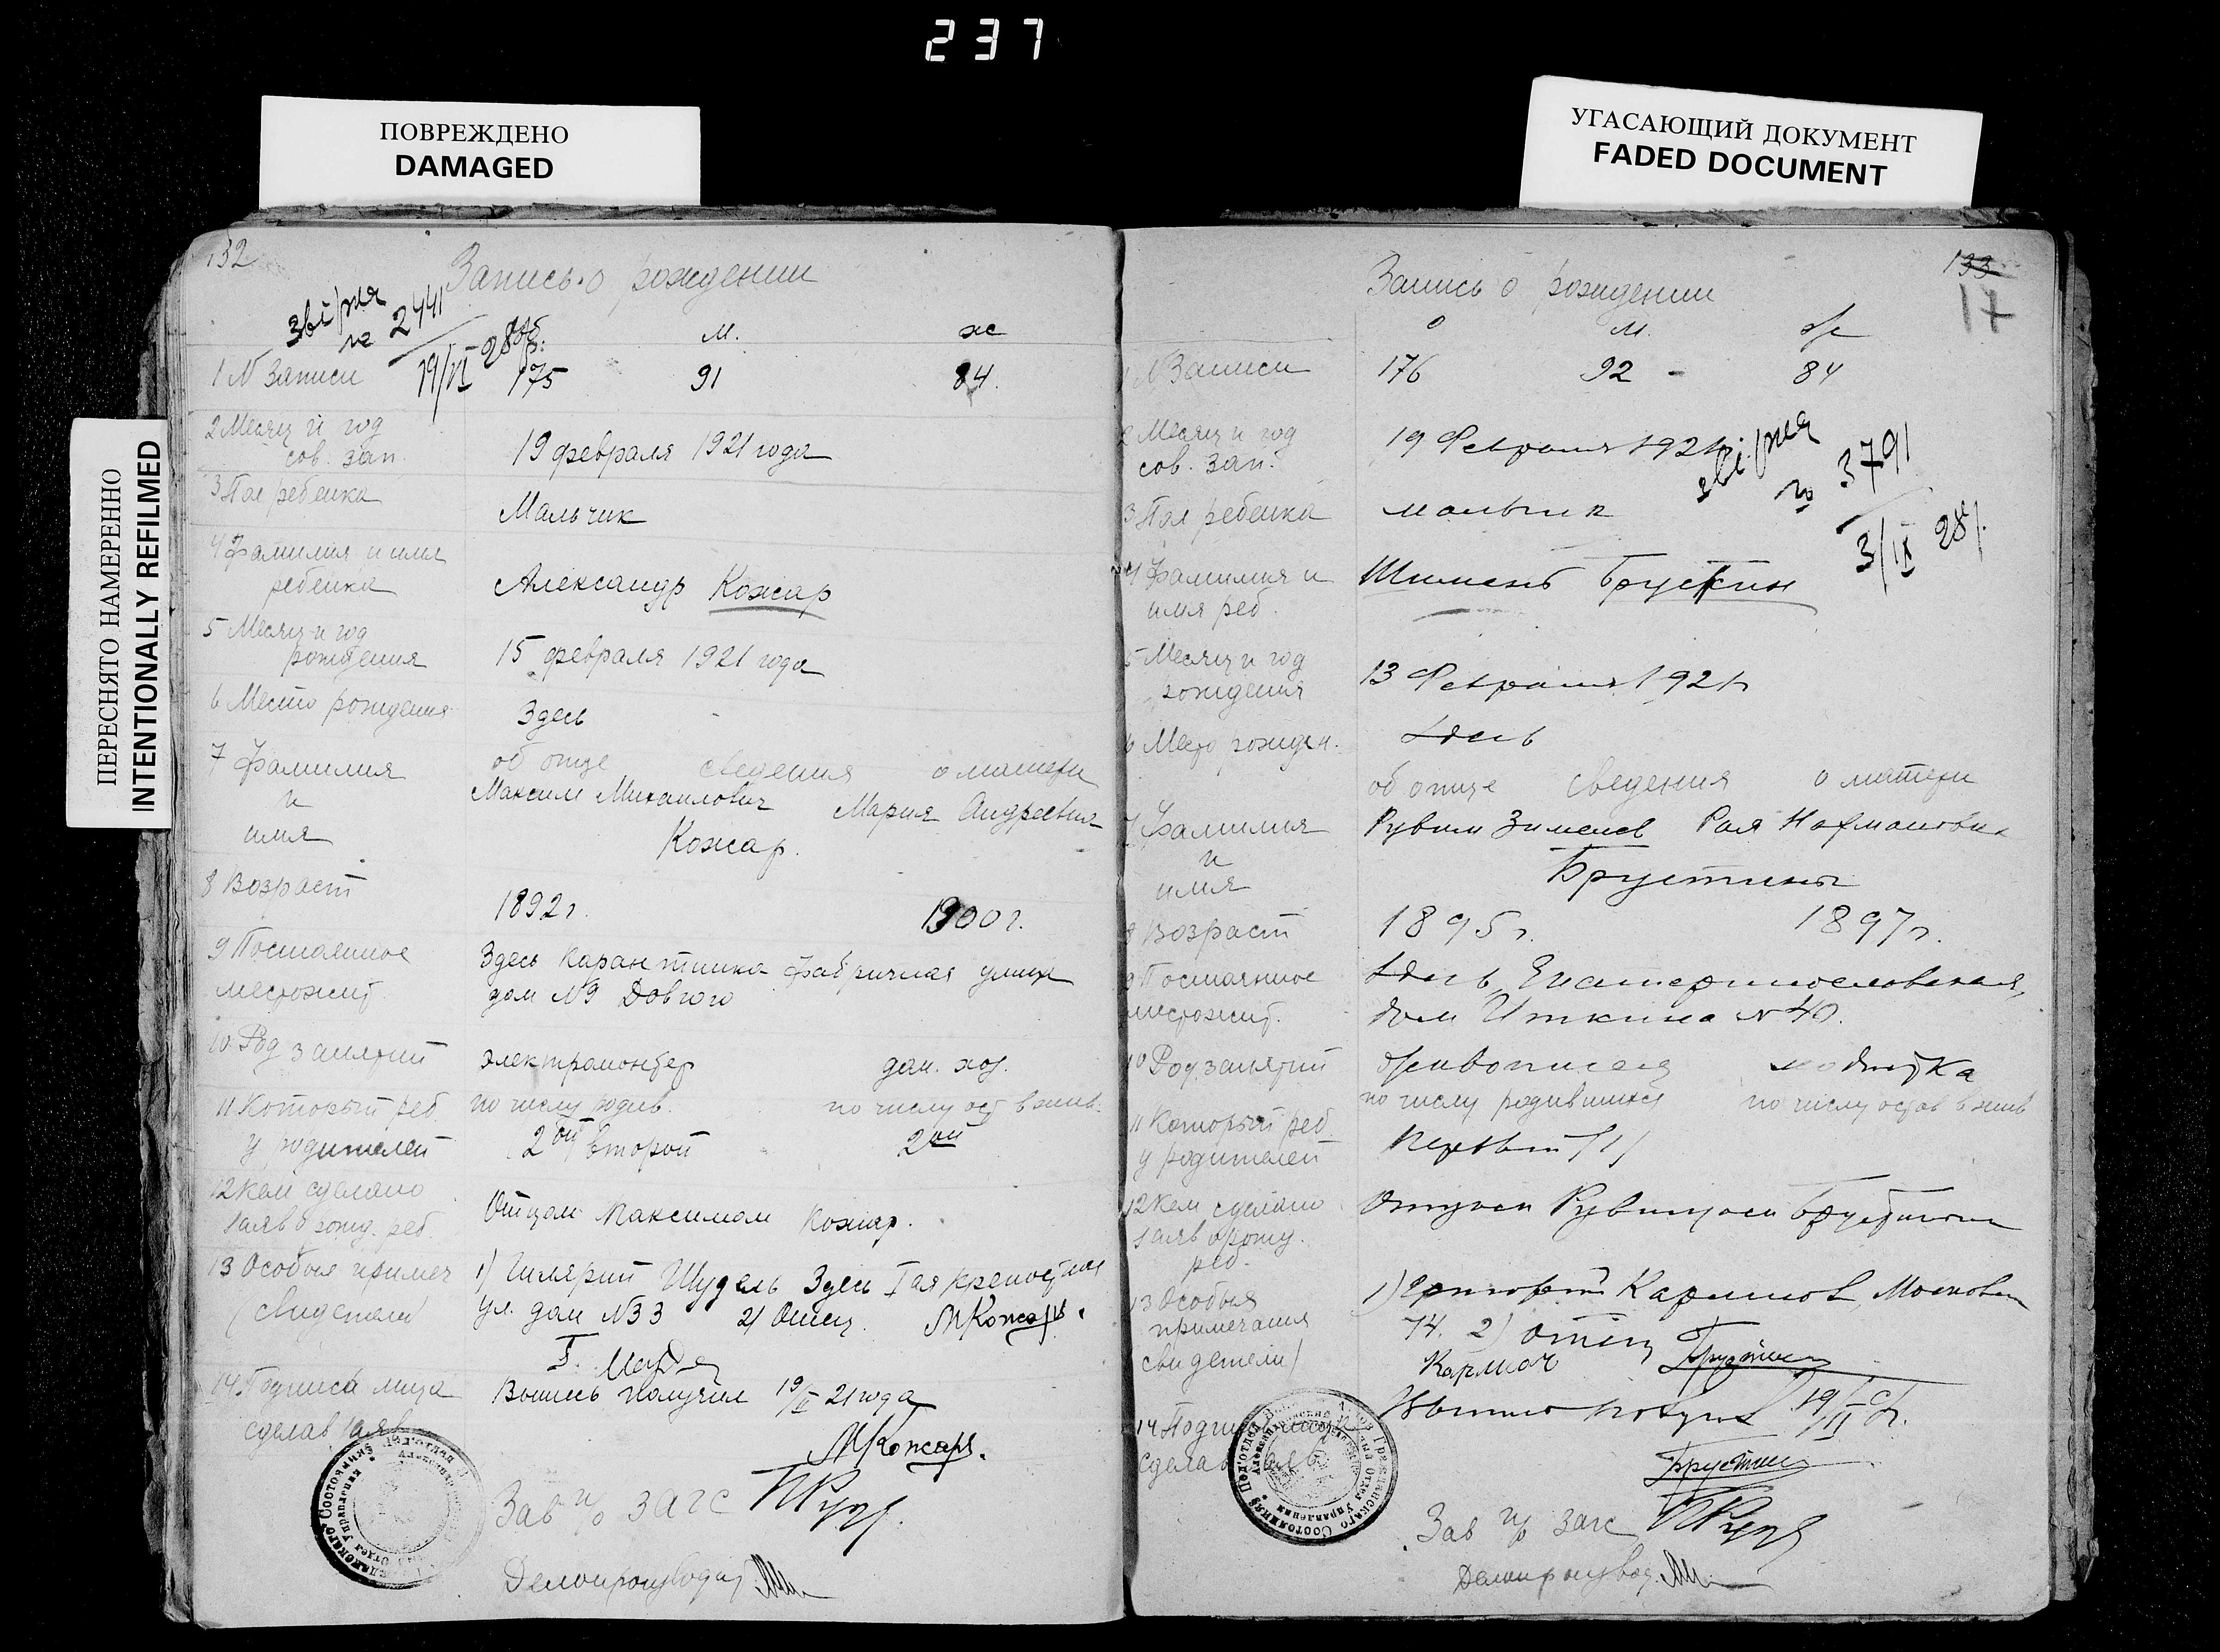 237
ПОВРЕЖДЕНО
DAMAGED
УГАСАЮЩИЙ ДОКУМЕНТ
FADED DOCUMENT
ПЕРЕСНЯТО НАМЕРЕННО
INTENTIONALLY REFILMED
132
Запись о рождении
№ 2441
19/VI 28 р.
об. м. ж
1 N Записи 175 91 84.
2 Месяц и год
сов. зап. 19 февраля 1921 года
3 Пол ребенка Мальчик
4 Фамилия и имя
ребенка Александр Кожар
5 Месяц и год
рождения 15 февраля 1921 года
6 Место рождения Здесь
7 Фамилия об отце сведения о матери
и Максим Михаилович Мария Андреевна
имя Кожар.
8 Возраст 1892 г. 1900 г.
9 Постоянное Здесь Карантинка Фабричная улица
местожит. дом №9 Довгого
10 Род занятий электромонтер дом. хоз.
11 Который реб. по числу родив. по числу ост в жив.
у родителей 2ой второй 2ой
12 Кем сделано
заяв о рожд. реб. Отцом Максимом Кожар.
13 Особыя примеч 1) Шудель Здесь I ая крепостная
(Свидетели) ул. дом №33 2) Отец. МКожарь.
14 Подпись лица Выпись получил 19/II 21 года
сделав заяв МКожарь.
Зав п/о загс
Делопроизводит
133
17
Запись о рождении
о м. ж
1 N Записи 176 92 - 84
2 Месяц и год
сов. зап. 19 Февраля 1921 г
№ 3791
3/IX 28 р.
3 Пол ребенка мальчик
4 Фамилия и
имя реб. Шимень Брускин
5 Месяц и год
рождения 13 Февраля 1921 г
6 Место рожден. Здесь
об отце сведения о матери
7 Фамилия Рувим Зимелев Рая Нахмановна
и
имя Брустины
8 Возраст 1895 г. 1897 г.
9 Постоянное Здесь, Екатеринославская,
местожит. дом Иткина N 40.
10 Род занятий живописец модистка
11 Который реб. по числу родившихся по числу остав в жив
у родителей первый /1/
12 Кем сделано Отцом Рувимом Брустиным
заяв о рожд.
реб.
13 Особыя 1) Григорий Карпинов, Московская
примечания 74. 2) Отец Брустин
(свидетели)
14 Подпись лица Выпись получил 19/II 21 г.
сделав заяв Брустин
Зав п/о загс
Делопроизвод.